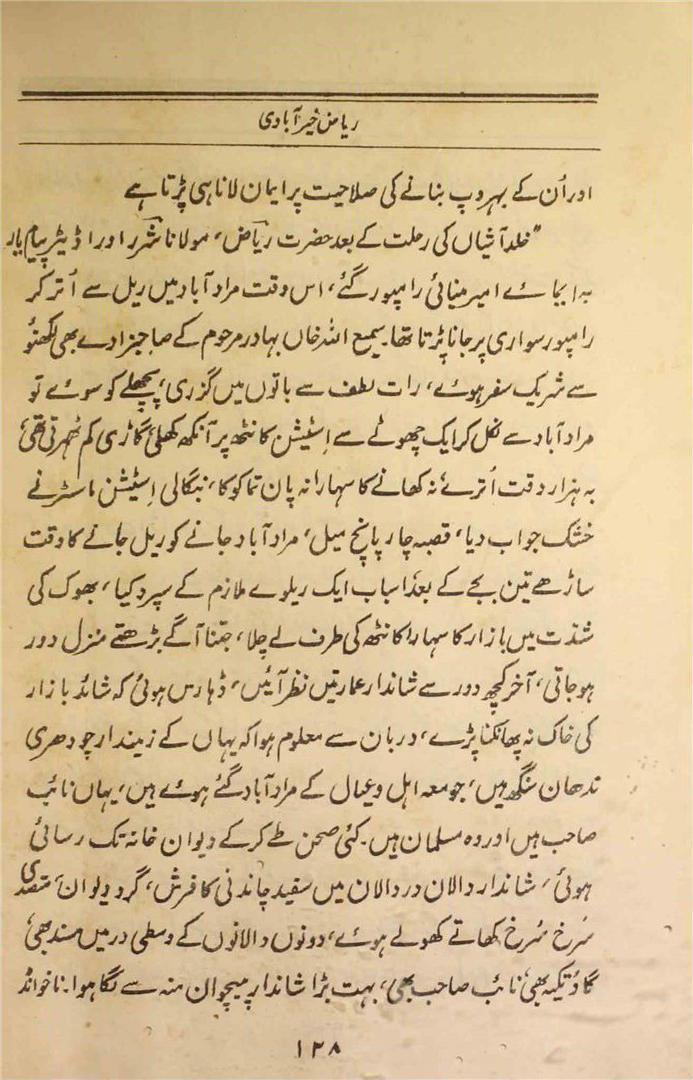 ریاض خیرآبادی
اور اُن کے بہروپ بنانے کی صلاحیت پر ایمان لانا ہی پڑتا ہے
"خلد آشیاں کی رحلت کے بعد حضرت ریاض، مولانا شرر اور اڈیٹر پیام یار
بہ ایمائے امیر مینائی رامپور گئے، اس وقت مراد آباد میں ریل سے اُتر کر
رامپور سواری پر جانا پڑتا تھا۔ سمیع اللہ خاں بہادر مرحوم کے صاحبزادے بھی لکھنؤ
سے شریک سفر ہوئے، رات لطف سے باتوں میں گزری، پچھلے کو سوئے تو
مراد آباد سے نکل کر ایک چھوٹے سے اسٹیشن کانٹھ پر آنکھ کھلی، گاڑی کم ٹھہرتی تھی،
بہ ہزار دقت اُترے، نہ کھانے کا سہارا نہ پان تماکو کا، بنگالی اسٹیشن ماسٹر نے
خشک جواب دیا، قصبہ چار پانچ میل، مراد آباد جانے کو ریل جانے کا وقت
ساڑھے تین بجے کے بعد، اسباب ایک ریلوے ملازم کے سپرد کیا، بھوک کی
شدّت میں بازار کا سہارا کانٹھ کی طرف لے چلا، جتنا آگے بڑھتے منزل دور
ہو جاتی، آخر کچھ دور سے شاندار عمارتیں نظر آئیں، ڈہارس ہوئی کہ شائد بازار
کی خاک نہ پھانکنا پڑے، دربان سے معلوم ہوا کہ یہاں کے زمیندار چودھری
ندھان سنگھ ہیں، جو معہ اہل و عیال کے مراد آباد گئے ہوئے ہیں، یہاں نائب
صاحب ہیں اور وہ مسلمان ہیں۔ کئی صحن طے کرکے دیوان خانہ تک رسائی
ہوئی، شاندار دالان در دالان میں سفید چاندنی کا فرش، گرد دیوان، متصدی
سُرخ سُرخ کھاتے کھولے ہوئے، دونوں دالانوں کے وسطی در میں مسند بھی،
گاؤ تکیہ بھی، نائب صاحب بھی، بہت بڑا شاندار پیچوان منہ سے لگا ہوا۔ ناخواندہ
۱۲۸